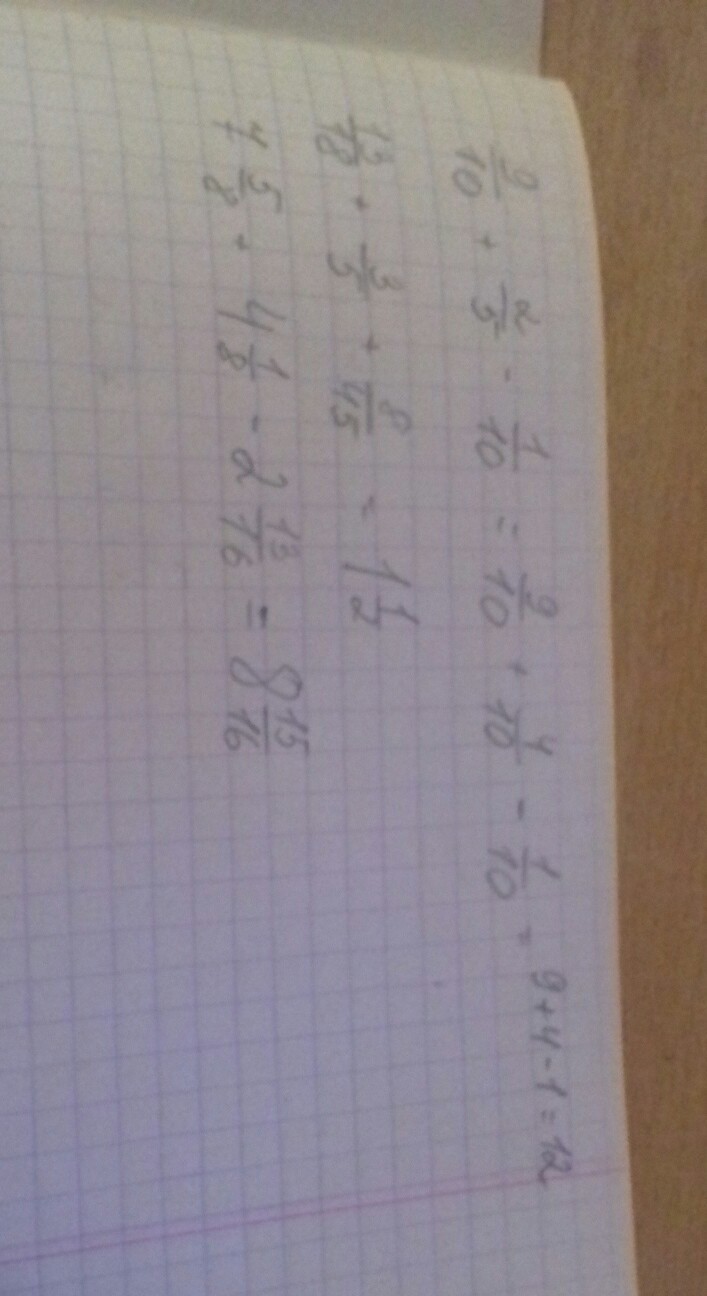 9/10 + 2/5 - 1/10 = 9/10 + 4/10 - 1/10 = 9+4-1=12
13/18 + 3/5 + 8/45 = 1 1/2
7 5/8 + 4 1/8 - 2 13/16 = 8 15/16